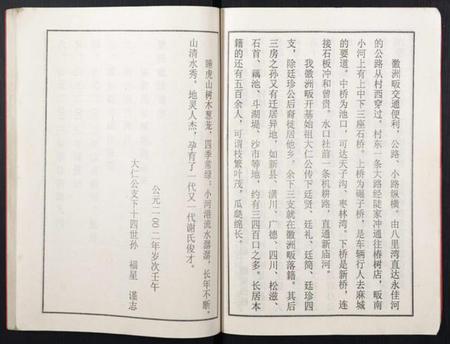 徽洲畈交通便利，公路、小路纵横。由八里湾直达永佳河
的公路从村西穿过。村东一条大路经陡家冲通往椿树店，畈南
小河上有上中下三座石桥。上桥为碾子桥，是车辆行人去麻城
的要道。中桥为池口，可达天子沟、枣林湾。下桥是新桥，连
接石板冲和曾贵。水口社前一条机耕路，直通新庙河。
我徽洲畈开基始祖大仁公传下廷贤、廷礼、廷简、廷珍四
支，除廷珍公后裔徒居他乡。余下三支就在徽洲畈落籍。其后
三房之孙又有迁居异地，如新县、潢川、广德、四川、松滋、
石首、藕池、斗湖堤、沙市等地，约有三四百口之多。长居本
籍的还有五百余人，可谓枝繁叶茂，瓜瓞绵长。
睡虎山树木葱茏，四季常绿。小河港流水潺潺，长年不断。
山清水秀，地灵人杰，孕育了一代又一代谢氏俊才。
公元二〇〇二年岁次壬午
大仁公支下十四世孙 福星 谨志